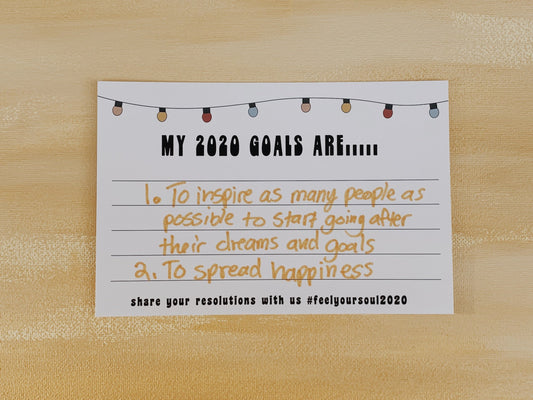 MY 2020 GOALS ARE.....
1. To inspire as many people as
possible to start going after
their dreams and goals
2. To spread happiness
share your resolutions with us #feelyoursoul2020